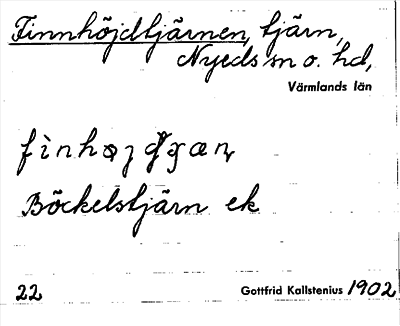 Finnhöjdtjärnen, tjärn,
Nyeds sn o. hd,
Värmlands län
Böckelstjärn ek
22 Gottfrid Kallstenius 1902